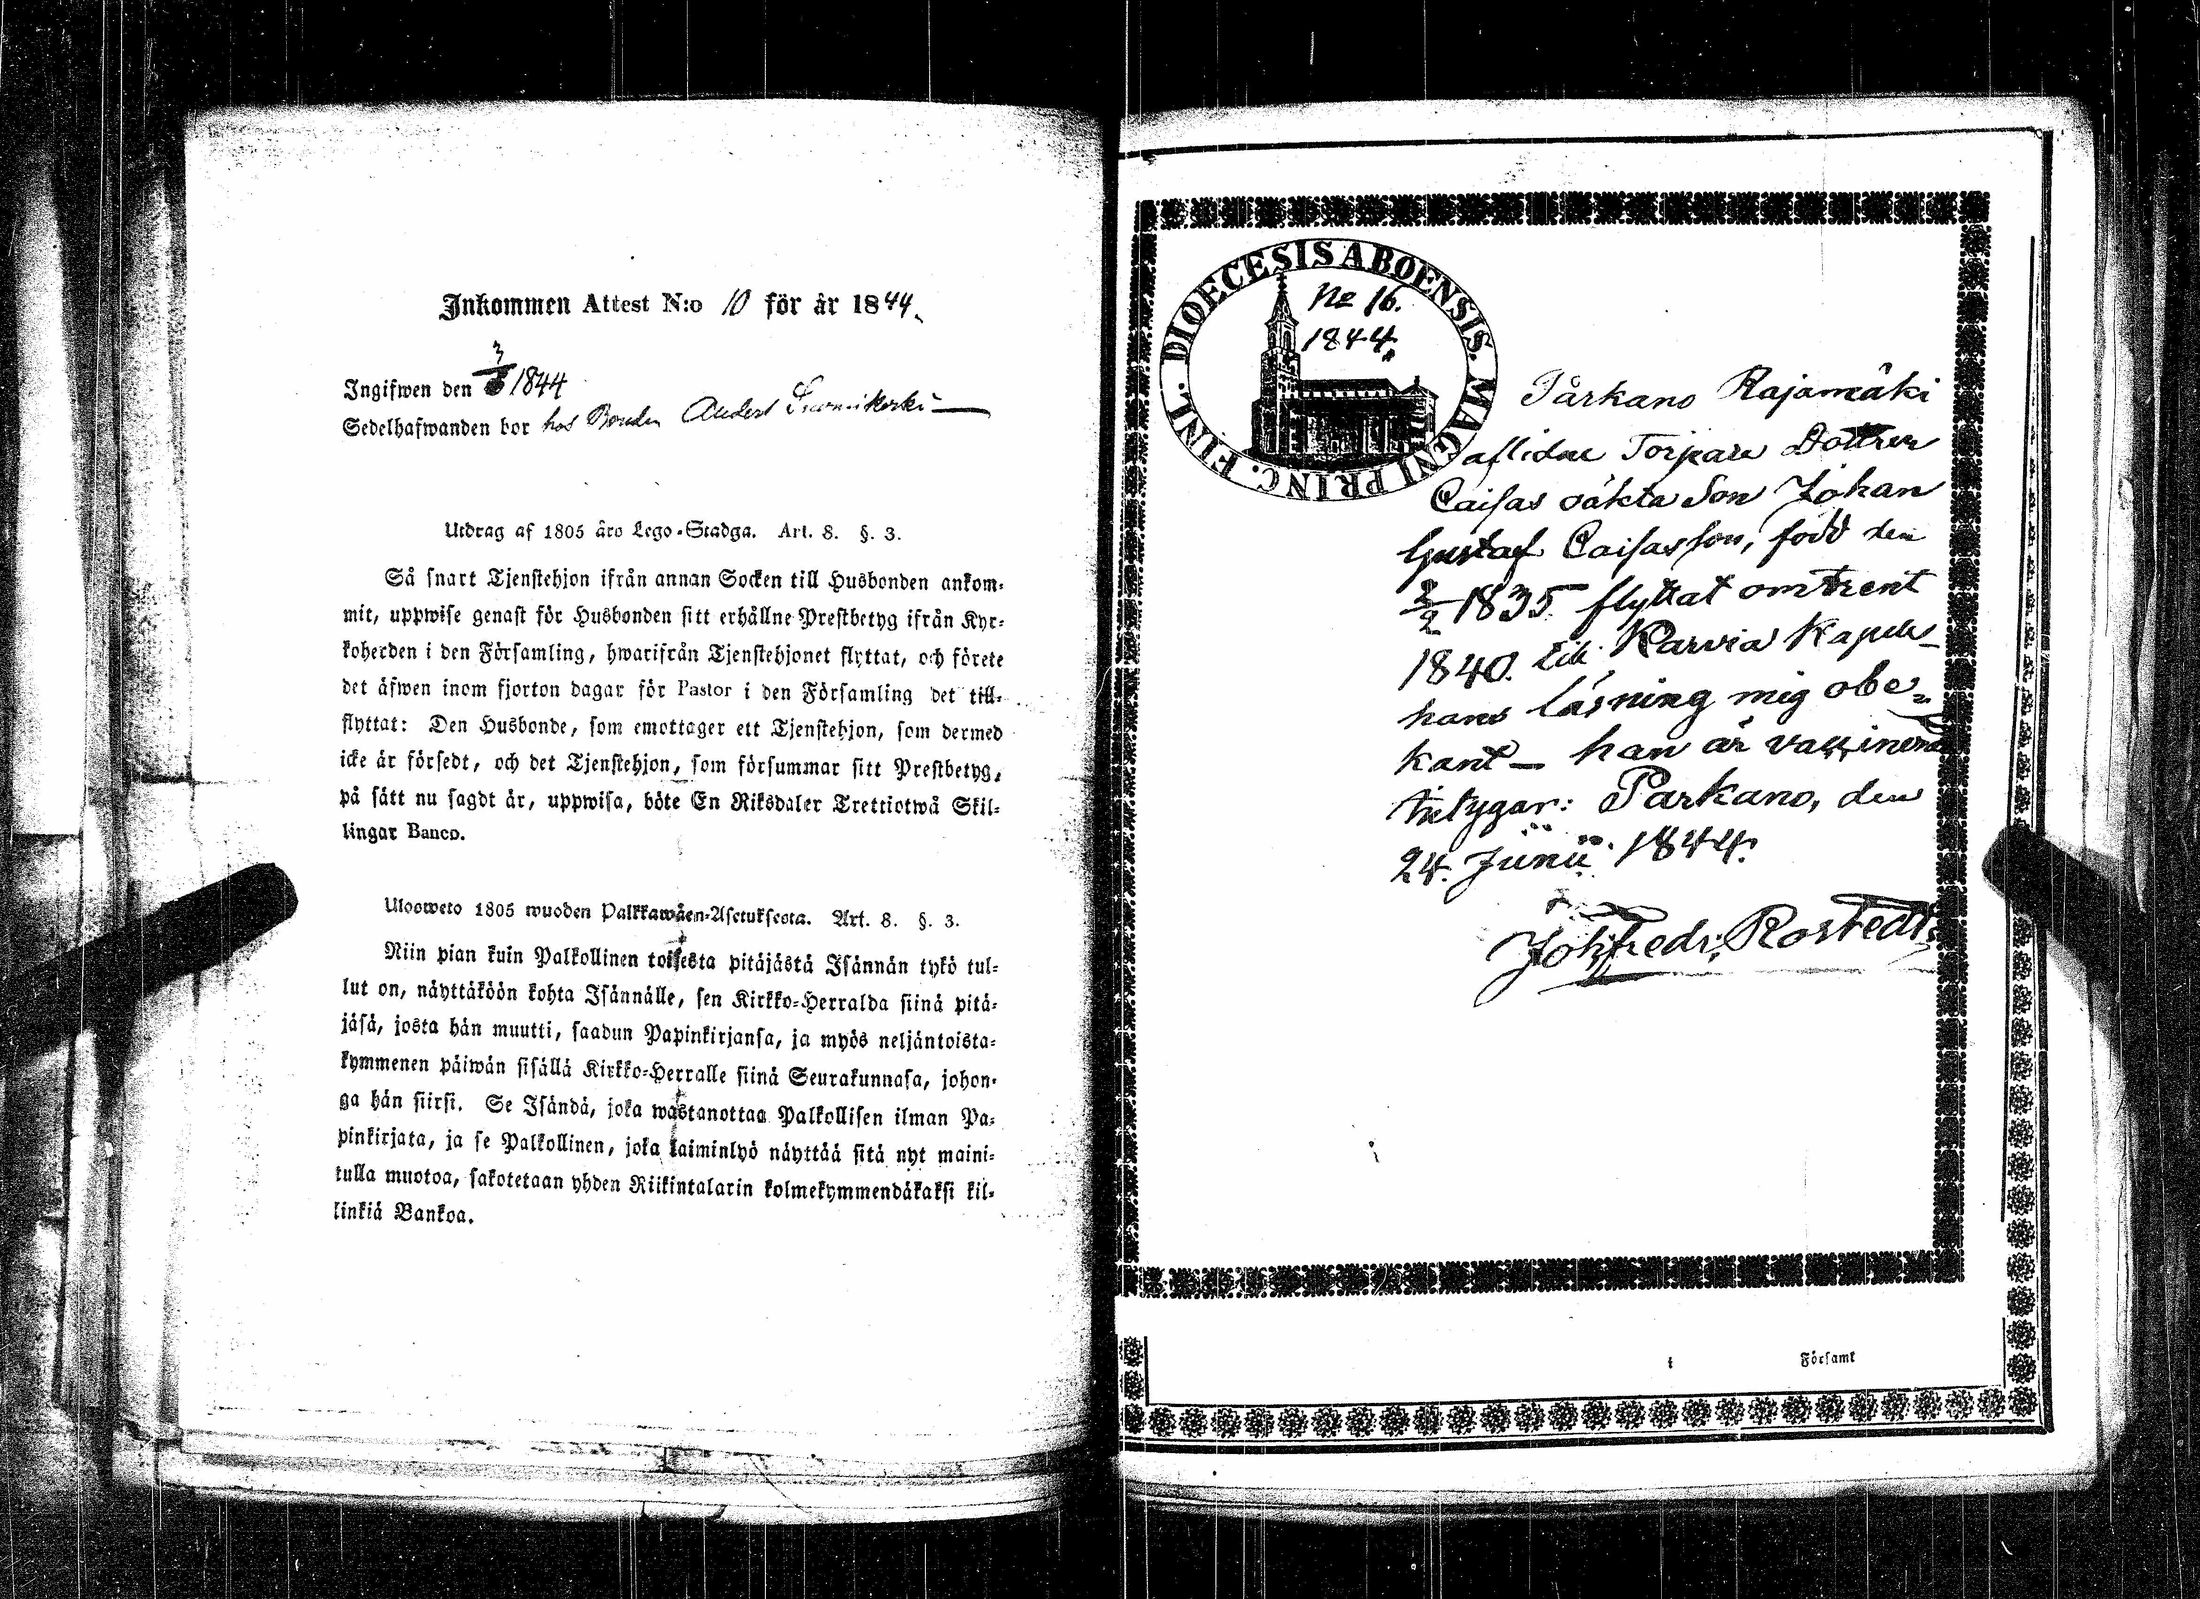 Inkommen Attest N:o 10 för år 1844.
Ingifwen den 3/8 1844
Sedelhafwanden bor hos Bonden Anders Suomikoski
Utdrag af 1805 års Lego-Stadga. Art. 8. §. 3.
Så snart Tjenstehjon ifrån annan Socken till Husbonden ankom-
mit, uppwise genast för Husbonden sitt erhållne Prestbetyg ifrån Kyr-
koherden i den Församling, hwarifrån Tjenstehjonet flyttat, och förete
det äfwen inom fjorton dagar för Pastor i den Församling det till-
flyttat: Den Husbonde, som emottager ett Tjenstehjon, som dermed
icke är försedt, och det Tjenstehjon, som försummar sitt Prestbetyg,
på sätt nu sagdt är, uppwisa, böte En Riksdaler Trettiotwå Skil-
lingar Banco.
Ulosweto 1805 wuoden Palkkawäen-Asetuksesta. Art. 8. §. 3.
Niin pian kuin Palkollinen toisesta pitäjästä Isännän tykö tul-
lut on, näyttäköön kohta Isännälle, sen Kirkko-Herralda siinä pitä-
jäsä, josta hän muutti, saadun Papinkirjansa, ja myös neljäntoista-
kymmenen päiwän sisällä Kirkko-Herralle siinä Seurakunnasa, johon-
ga hän siirsi. Se Isändä, joka wastanottaa Palkollisen ilman Pa-
pinkirjata, ja se Palkollinen, joka laiminlyö näyttää sitä nyt maini-
tulla muotoa, sakotetaan yhden Riikintalarin kolmekymmendäkaksi kil-
linkiä Bankoa.
DIOECESIS ABOENSIS. MAGNI PRINC. FINL.
No 16.
1844.
Parkano Rajamäki
aflidne Torpare Dottren
Caisas oäkta Son Johan
Gustaf Caisasson, född den
2/2 1835 flyttat omtrent
1840. till Karvia Kapell
hans läsning mig obe-
kant – han är vaccinerad
betygar: Parkano, den
24. Junii 1844.
Joh. Fredr. Rostedt
i Församl